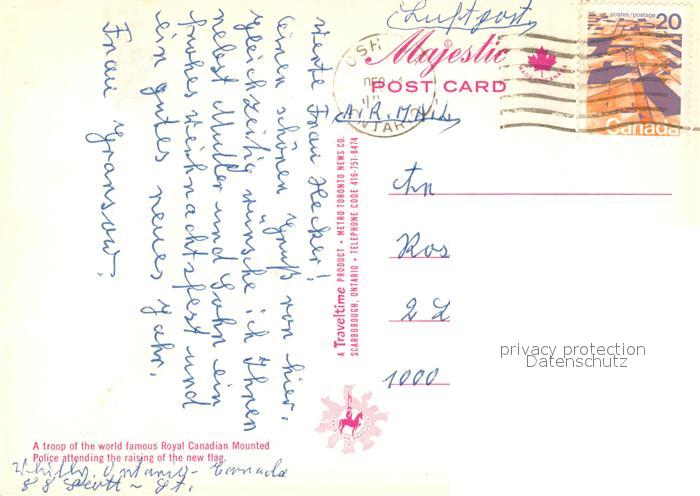 Luftpost
postes/postage
20
Canada
OSH
DEC
ONTARIO
Majestic
MADE IN CANADA
POST CARD
AIR MAIL
Werte Frau Hecker!
Einen schönen Gruß von hier.
Gleichzeitig wünsche ich Ihnen
nebst Mutter und Sohn ein
frohes Weihnachtsfest und
ein gutes neues Jahr.
Frau Gransow.
A Traveltime PRODUCT • METRO TORONTO NEWS CO.
SCARBOROUGH, ONTARIO • TELEPHONE CODE 416-751-8474
An
Ros
2 L
1000
privacy protection
Datenschutz
A troop of the world famous Royal Canadian Mounted
Police attending the raising of the new flag.
Whitby, Ontario - Canada
Scott - St.